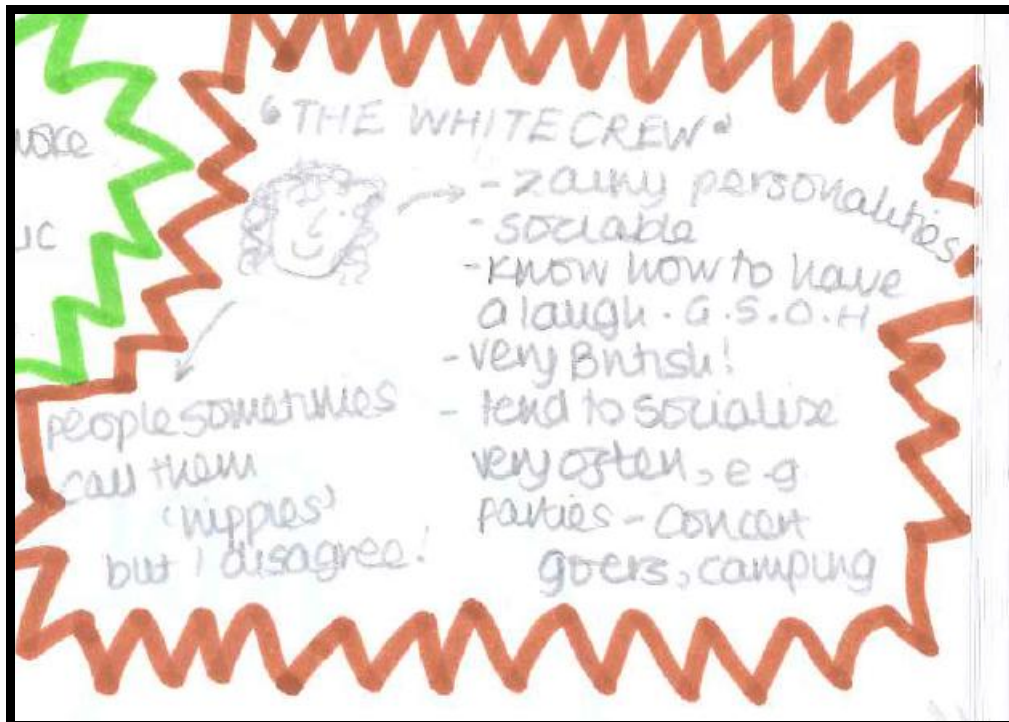 "THE WHITE CREW"
- zainy personalities
- sociable
- know how to have
a laugh. G.S.O.H
- very British!
- tend to socialise
very often, e.g
parties - concert
goers, camping
people sometimes
call them
'hippies'
but I disagree!